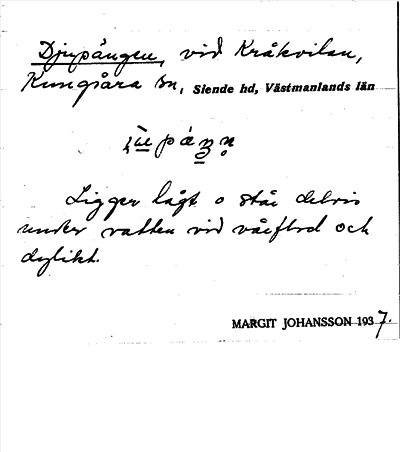 Djupängen, vid Kråkvilan,
Kungsåra sn, Siende hd, Västmanlands län
Ligger lågt o står delvis
under vatten vid vårflod och
dylikt.
MARGIT JOHANSSON 1937.